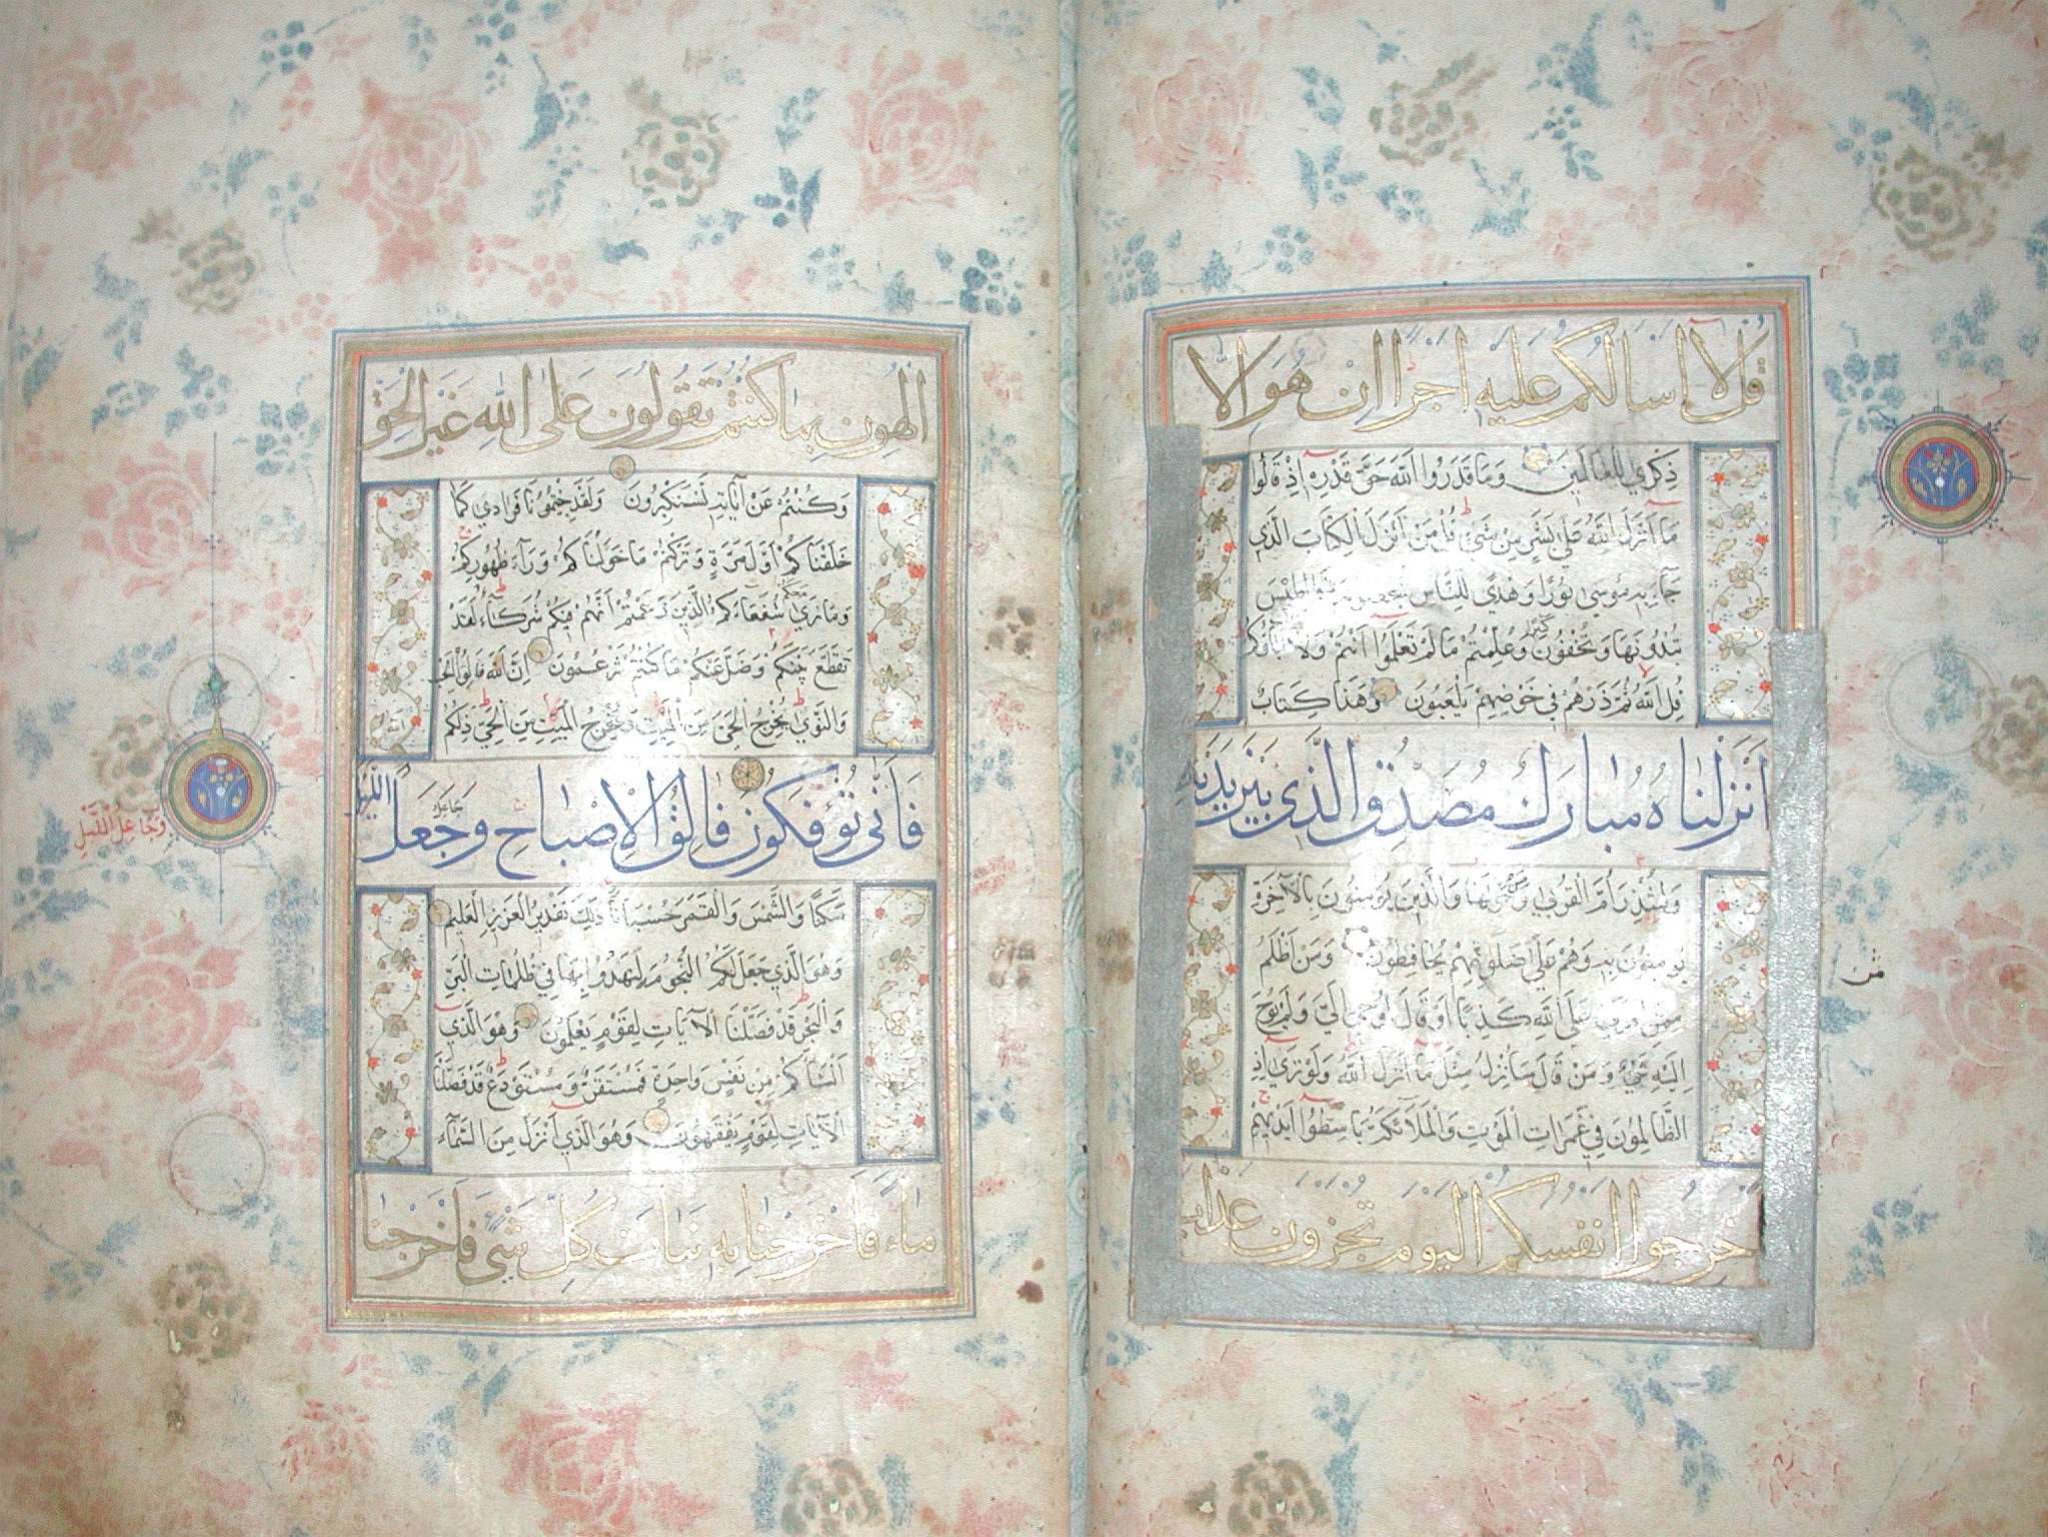 قُل لَا اَسْاَلُكُمْ عَلَيْهِ اَجْرًا اِنْ هُوَ اِلَّا
ذِكْرٰي لِلْعَالَمِينَ وَمَا قَدَرُوا اللّٰهَ حَقَّ قَدْرِهِ اِذْ قَالُوا
مَا اَنْزَلَ اللّٰهُ عَلٰي بَشَرٍ مِنْ شَيْءٍ قُلْ مَنْ اَنْزَلَ الْكِتَابَ الَّذِي
جَاءَ بِهِ مُوسٰي نُورًا وَهُدًي لِلنَّاسِ تَجْعَلُونَهُ قَرَاطِيسَ
تُبْدُونَهَا وَتُخْفُونَ كَثِيرًا وَعُلِّمْتُمْ مَا لَمْ تَعْلَمُوا اَنْتُمْ وَلَا اٰبَاؤُكُمْ
قُلِ اللّٰهُ ثُمَّ ذَرْهُمْ فِي خَوْضِهِمْ يَلْعَبُونَ وَهٰذَا كِتَابٌ
اَنْزَلْنَاهُ مُبَارَكٌ مُصَدِّقُ الَّذِي بَيْنَ يَدَيْهِ
وَلِتُنْذِرَ اُمَّ الْقُرٰي وَمَنْ حَوْلَهَا وَالَّذِينَ يُؤْمِنُونَ بِالْاٰخِرَةِ
يُؤْمِنُونَ بِهِ وَهُمْ عَلٰي صَلَوتِهِمْ يُحَافِظُونَ وَمَنْ اَظْلَمُ
مِمَّنِ افْتَرٰي عَلَي اللّٰهِ كَذِبًا اَوْ قَالَ اُوحِيَ اِلَيَّ وَلَمْ يُوحَ
اِلَيْهِ شَيْءٌ وَمَنْ قَالَ سَاُنْزِلُ مِثْلَ مَا اَنْزَلَ اللّٰهُ وَلَوْ تَرٰي اِذِ
الظَّالِمُونَ فِي غَمَرَاتِ الْمَوْتِ وَالْمَلَائِكَةُ بَاسِطُوا اَيْدِيهِمْ
اَخْرِجُوا اَنْفُسَكُمُ الْيَوْمَ تُجْزَوْنَ عَذَابَ
الْهُونِ بِمَا كُنْتُمْ تَقُولُونَ عَلَي اللّٰهِ غَيْرَ الْحَقِّ
وَكُنْتُمْ عَنْ اٰيَاتِهِ تَسْتَكْبِرُونَ وَلَقَدْ جِئْتُمُونَا فُرَادٰي كَمَا
خَلَقْنَاكُمْ اَوَّلَ مَرَّةٍ وَتَرَكْتُمْ مَا خَوَّلْنَاكُمْ وَرَاءَ ظُهُورِكُمْ
وَمَا نَرٰي مَعَكُمْ شُفَعَاءَكُمُ الَّذِينَ زَعَمْتُمْ اَنَّهُمْ فِيكُمْ شُرَكَاءُ لَقَدْ
تَقَطَّعَ بَيْنَكُمْ وَضَلَّ عَنْكُمْ مَا كُنْتُمْ تَزْعُمُونَ اِنَّ اللّٰهَ فَالِقُ الْحَبِّ
وَالنَّوٰي يُخْرِجُ الْحَيَّ مِنَ الْمَيِّتِ وَمُخْرِجُ الْمَيِّتِ مِنَ الْحَيِّ ذٰلِكُمُ اللّٰهُ
فَاَنّٰي تُؤْفَكُونَ فَالِقُ الْاِصْبَاحِ وَجَعَلَ الَّيْلَ
جَاعِلُ
وَجَاعِلُ اللَّيْلِ
سَكَنًا وَالشَّمْسَ وَالْقَمَرَ حُسْبَانًا ذٰلِكَ تَقْدِيرُ الْعَزِيزِ الْعَلِيمِ
وَهُوَ الَّذِي جَعَلَ لَكُمُ النُّجُومَ لِتَهْتَدُوا بِهَا فِي ظُلُمَاتِ الْبَرِّ
وَالْبَحْرِ قَدْ فَصَّلْنَا الْاٰيَاتِ لِقَوْمٍ يَعْلَمُونَ وَهُوَ الَّذِي
اَنْشَاَكُمْ مِنْ نَفْسٍ وَاحِدَةٍ فَمُسْتَقَرٌّ وَمُسْتَوْدَعٌ قَدْ فَصَّلْنَا
الْاٰيَاتِ لِقَوْمٍ يَفْقَهُونَ وَهُوَ الَّذِي اَنْزَلَ مِنَ السَّمَاءِ
مَاءً فَاَخْرَجْنَا بِهِ نَبَاتَ كُلِّ شَيْءٍ فَاَخْرَجْنَا